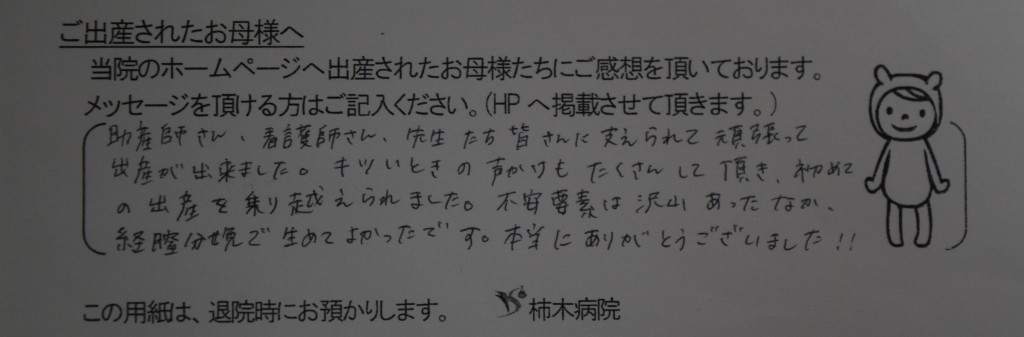 ご出産されたお母様へ
当院のホームページへ出産されたお母様たちにご感想を頂いております。
メッセージを頂ける方はご記入ください。(HPへ掲載させて頂きます。)
助産師さん、看護師さん、先生たち皆さんに支えられて頑張って
出産が出来ました。キツいときの声かけもたくさんして頂き、初めて
の出産を乗り越えられました。不安要素は沢山あったなか、
経膣分娩で生めてよかったです。本当にありがとうございました!!
この用紙は、退院時にお預かりします。 柿木病院